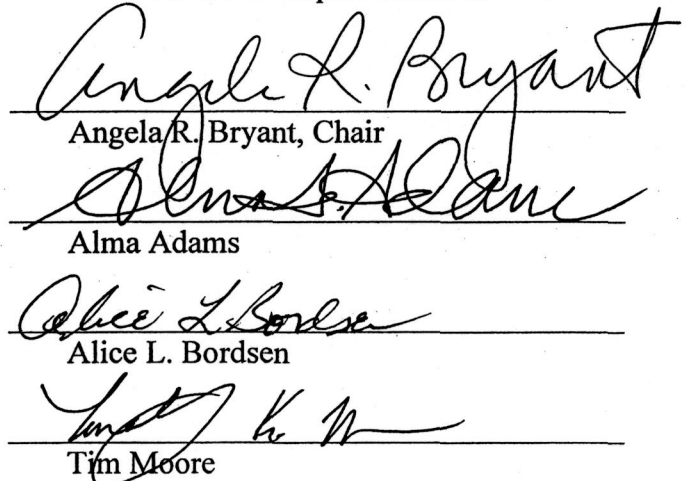 Angela R. Bryant
Angela R. Bryant, Chair
Alma S. Adams
Alma Adams
Alice L. Bordsen
Alice L. Bordsen
Timothy K. M
Tim Moore